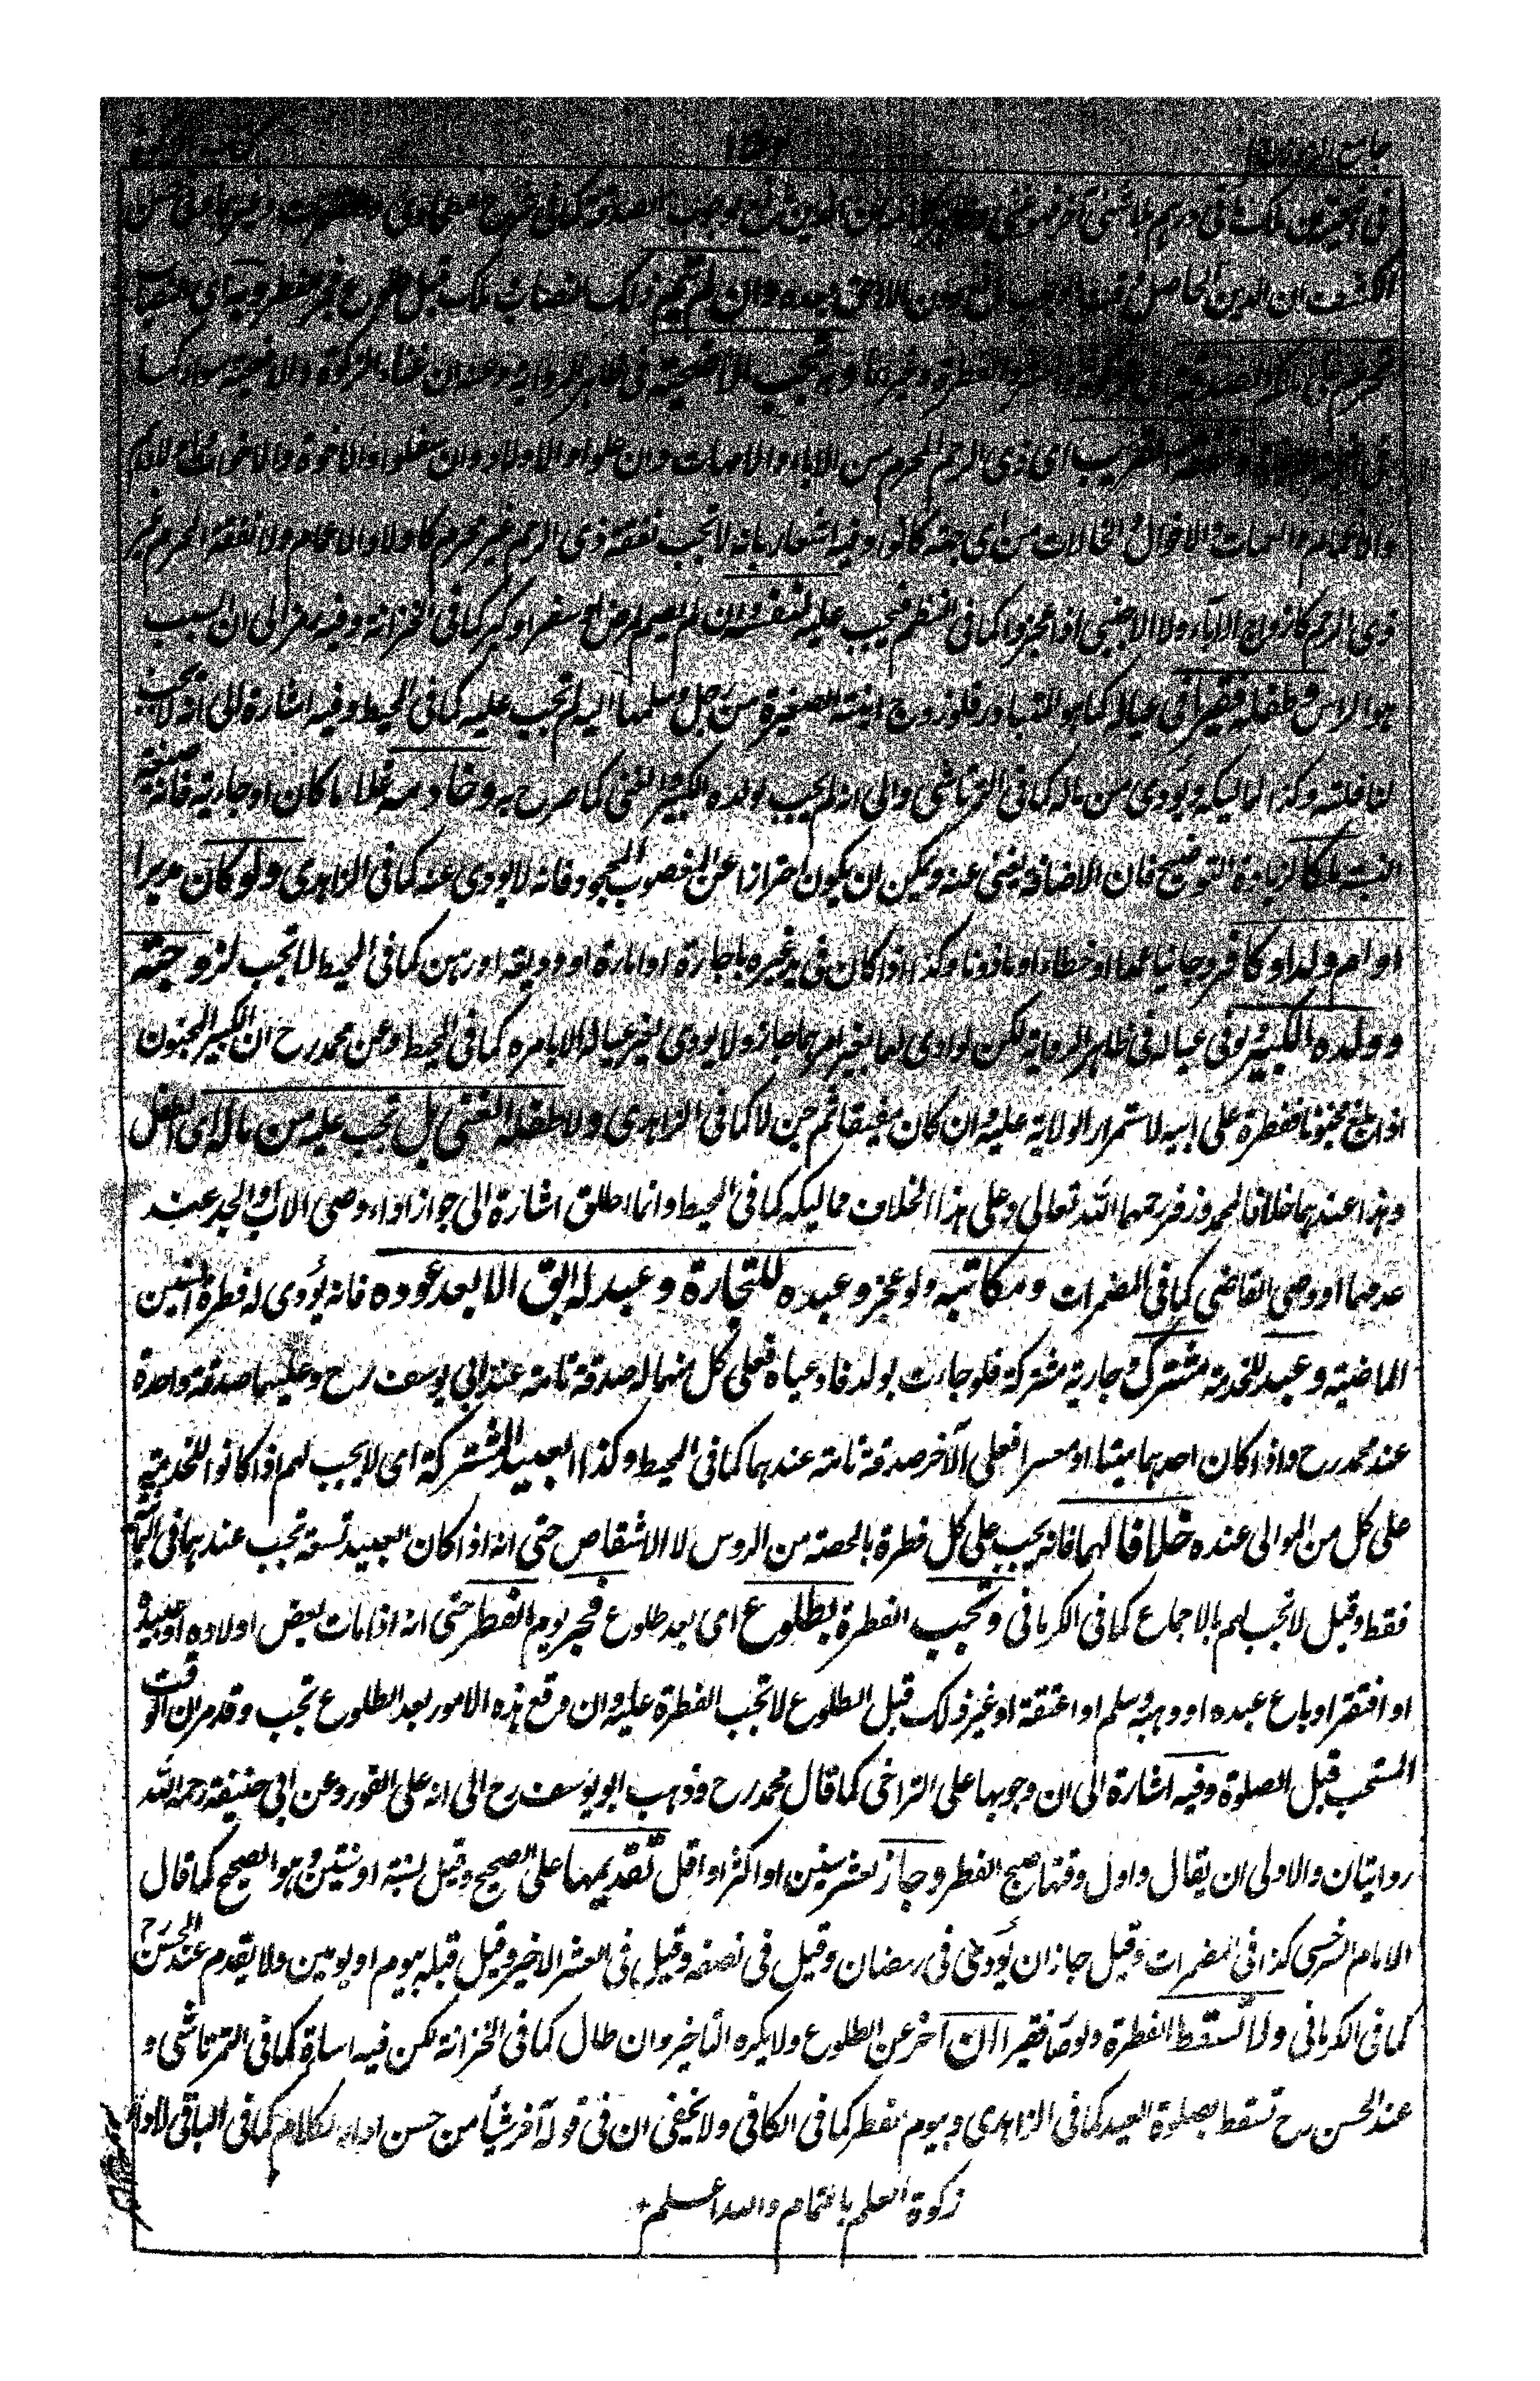 جامع الرموز
كتاب الزكوة
الكشف ان الدين الحاصل وان لم يتم ذلك النصاب ملك قبل طلوع فجر الفطر وبه اى بنصاب
تحرم تجب الاضحية فى ظاهر الرواية وعنه ان هذا والزكوة والاضحية سواء كما
ونفقة القريب اى ذى الرحم المحرم من الاباء والامهات وان علوا والاولاد وان سفلوا والاخوة والاخوات
والاعمام والعمات والاخوال والخالات من اى جهة كانوا وفيه اشعار بانه لا تجب نفقة ذى الرحم غير محرم كاولاد الاعمام ولا نفقة المحرم غير
ذى الرحم كازواج الاباء ولا الاجنبى اذا عجزوا كما فى النظم فتجب عليه لنفسه وان لم يصم لمرض او سفر او كبر كما فى الخزانة وفيه رمز الى ان السبب
هو الراس وطفله فقيرا فى عياله كما هو المتبادر فلو زوج ابنته الصغيرة من رجل وسلمها اليه لم تجب عليه كما فى المحيط وفيه اشارة الى انه لا تجب
لنافلته وكذا لمماليكه ويؤدى من ماله كما فى التمرتاشى والى انه لم يجب لولده الكبير الغنى كما صرح به وخادمه غلاما كان او جارية فانه صفة
البتة ملكا لزيادة التوضيح فان الاضافة يغنى عنه ويمكن ان يكون احترازا عن المغصوب المجحود فانه لا يودى عنه كما فى الزاهدى ولو كان مدبرا
او ام ولد او كافرا وجانيا عمدا او خطاء او ماذونا وكذا اذا كان فى يد غيره باجارة او اعارة او وديعة او رهن كما فى المحيط لا تجب لزوجته
وولده الكبير ولو فى عياله فى ظاهر الرواية لكن لو ادى لهما بغير امرهما جاز ولا يودى لغير عياله الا بامره كما فى المحيط وعن محمد رح ان الكبير المجنون
اذا بلغ مجنونا ففطرة على ابيه لاستمرار الولاية عليه وان كان مفيقا ثم جن لا كما فى الزاهدى ولا طفله الغنى بل تجب عليه من ماله اى الطفل
وهذا عندهما خلافا لمحمد وزفر رحمهما الله تعالى وعلى هذا الخلاف مماليكه كما فى المحيط وانما اطلق اشارة الى جواز اداء وصى الاب او الجد عند
عدمهما او وصى القاضى كما فى المضمرات ومكاتبه ولو عجز وعبده للتجارة وعبد له ابق الا بعد عوده فانه يؤدى له فطرة السنين
الماضية وعبد للخدمة مشترك وجارية مشتركة فلو جاءت بولد فادعياه فعلى كل منهما له صدقة تامة عند ابى يوسف رح وعليهما صدقة واحدة
عند محمد رح واذا كان احدهما ميتا او معسرا فعلى الآخر صدقة تامة عندهما كما فى المحيط وكذا العبيد المشتركة اى لا يجب لهم اذا كانوا للخدمة
على كل من الموالى عنده خلافا لهما فانه يجب على كل فطرة بالحصة من الروس لا الاشقاص حتى انه اذا كان العبيد تسعة تجب عندهما فى الثمانية
فقط وقيل لا تجب لهم بالاجماع كما فى الكرمانى وتجب الفطرة بطلوع اى بعد طلوع فجر يوم الفطر حتى انه اذا مات بعض اولاده او عبيده
او افتقر او باع عبده او وهبه وسلم او اعتقه او غير ذلك قبل الطلوع لا تجب الفطرة عليه وان وقع هذه الامور بعد الطلوع تجب وقد مر ان الوقت
المستحب قبل الصلوة وفيه اشارة الى ان وجوبها على التراخى كما قال محمد رح وذهب ابو يوسف رح الى انه على الفور وعن ابى حنيفة رحمه الله
روايتان والاولى ان يقال واول وقتها صبح الفطر وجاز بعشر سنين او اكثر او اقل تقديمها على الصحيح وقيل لسنة او سنتين وهو الصحيح كما قال
الامام السرخسى كذا فى المضمرات وقيل جاز ان يؤدى فى رمضان وقيل فى نصفه وقيل فى العشر الاخير وقيل قبله بيوم او يومين ولا يقدم عند الحسن رح
كما فى الكرمانى ولا تسقط الفطرة ولو صار فقيرا ان آخر عن الطلوع ولا يكره التاخير وان طال كما فى الخزانة لكن فيه اساءة كما فى التمرتاشى و
عند الحسن رح تسقط بصلوة العيد كما فى الزاهدى وبيوم الفطر كما فى الكافى ولا يخفى ان فى قوله آخر شيأ من حسن اداء الكلام كما فى الباقى لاداء
زكوة العلم بالتمام والله اعلم